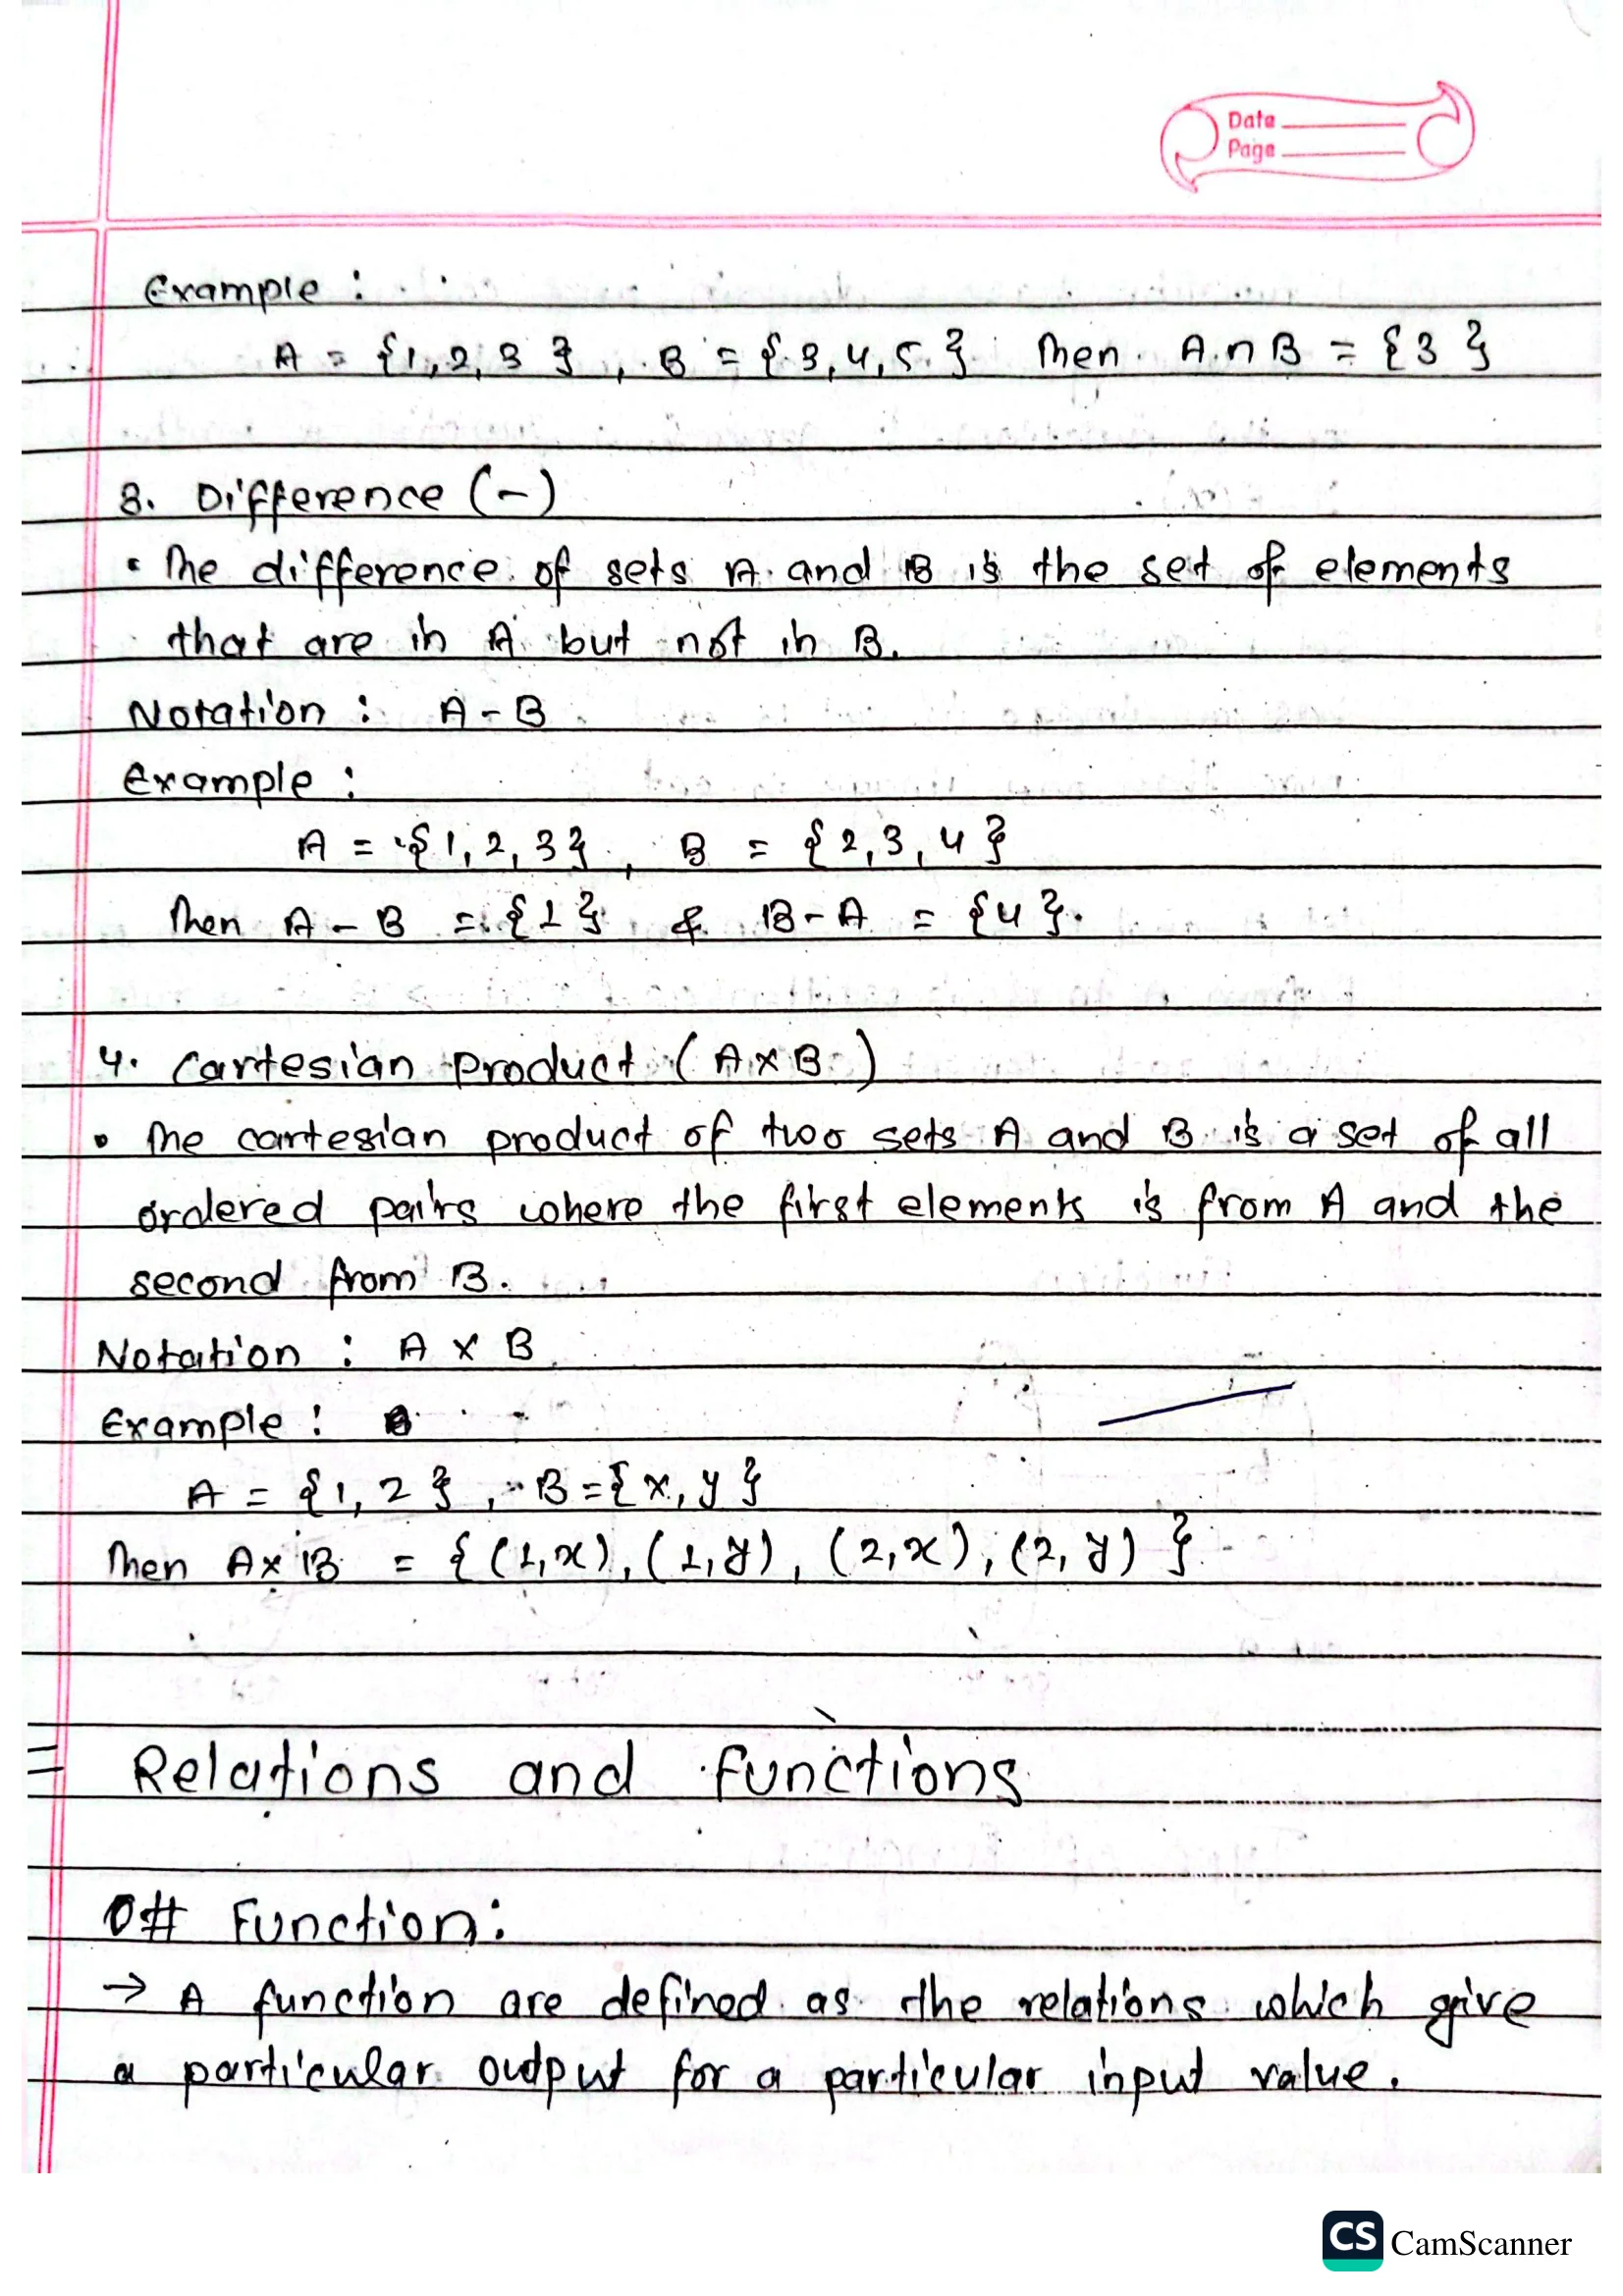 Date
Page
Example :
A = {1,2,3 } , B = {3,4,5 } Then A ∩ B = {3 }
3. Difference (-)
• The difference of sets A and B is the set of elements
that are in A but not in B.
Notation : A - B
Example :
A = {1, 2, 3} , B = {2,3,4 }
Then A - B = {1} & B - A = {4}.
4. Cartesian product ( A×B )
• The cartesian product of two sets A and B is a set of all
ordered pairs where the first elements is from A and the
second from B.
Notation : A × B
Example :
A = {1, 2 } , B = {x, y }
Then A× B = { (1,x), (1,y), (2,x), (2, y) }
= Relations and functions
# Function:
→ A function are defined as the relations which give
a particular output for a particular input value.
CS CamScanner